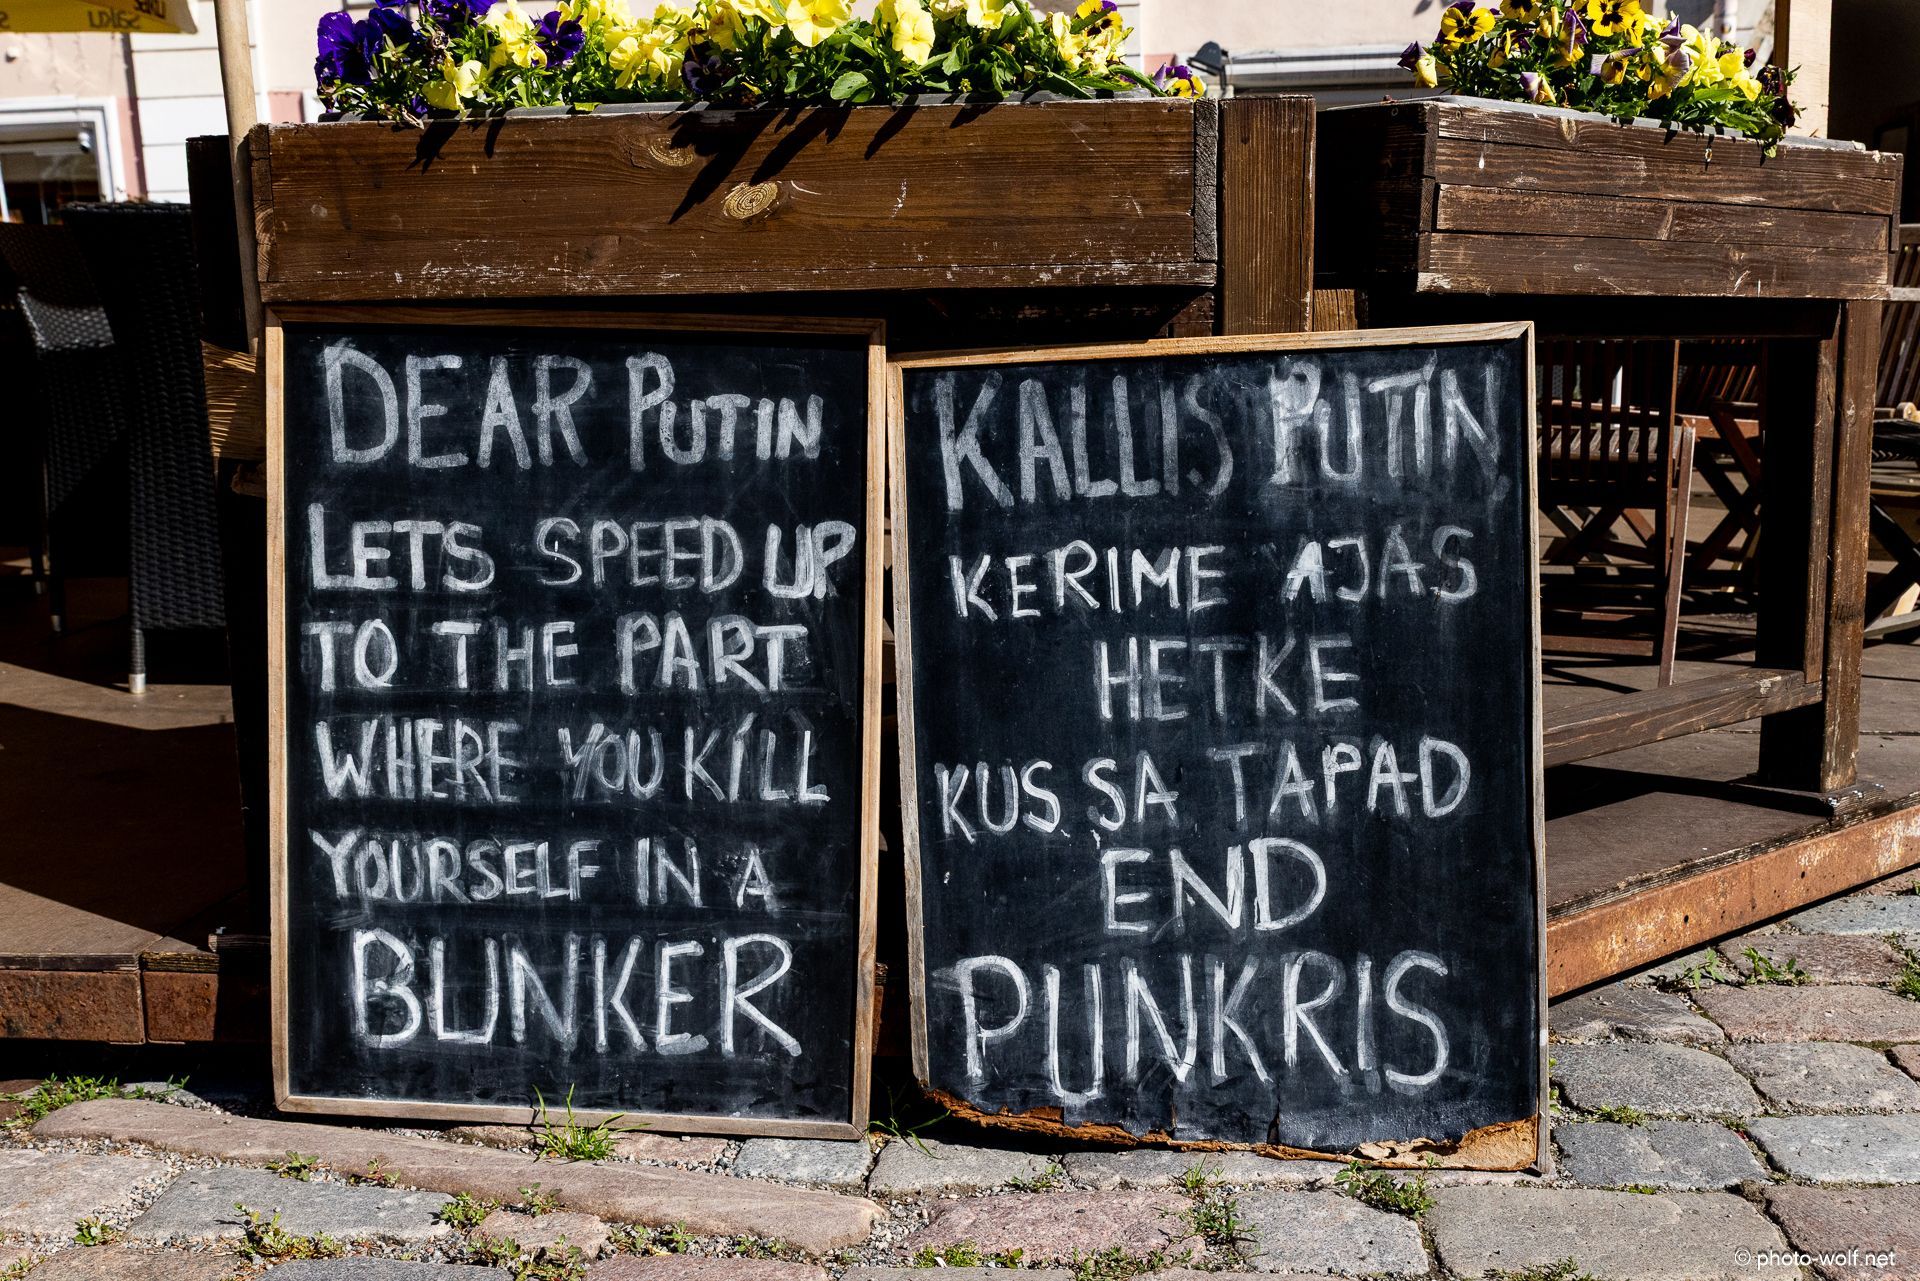 DEAR PUTIN
LETS SPEED UP
TO THE PART
WHERE YOU KILL
YOURSELF IN A
BUNKER
KALLIS PUTIN,
KERIME AJAS
HETKE
KUS SA TAPAD
END
PUNKRIS
© photo-wolf.net